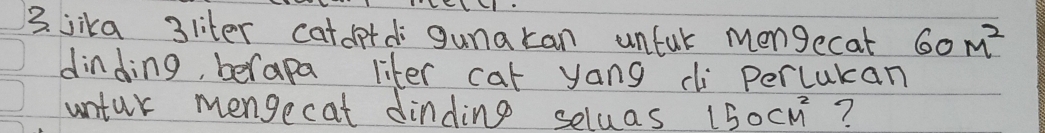 3. jika 3 liter cat dpt di gunakan untuk mengecat 60 M²
dinding, berapa liter cat yang di perlukan
untuk mengecat dinding seluas 150 CM² ?